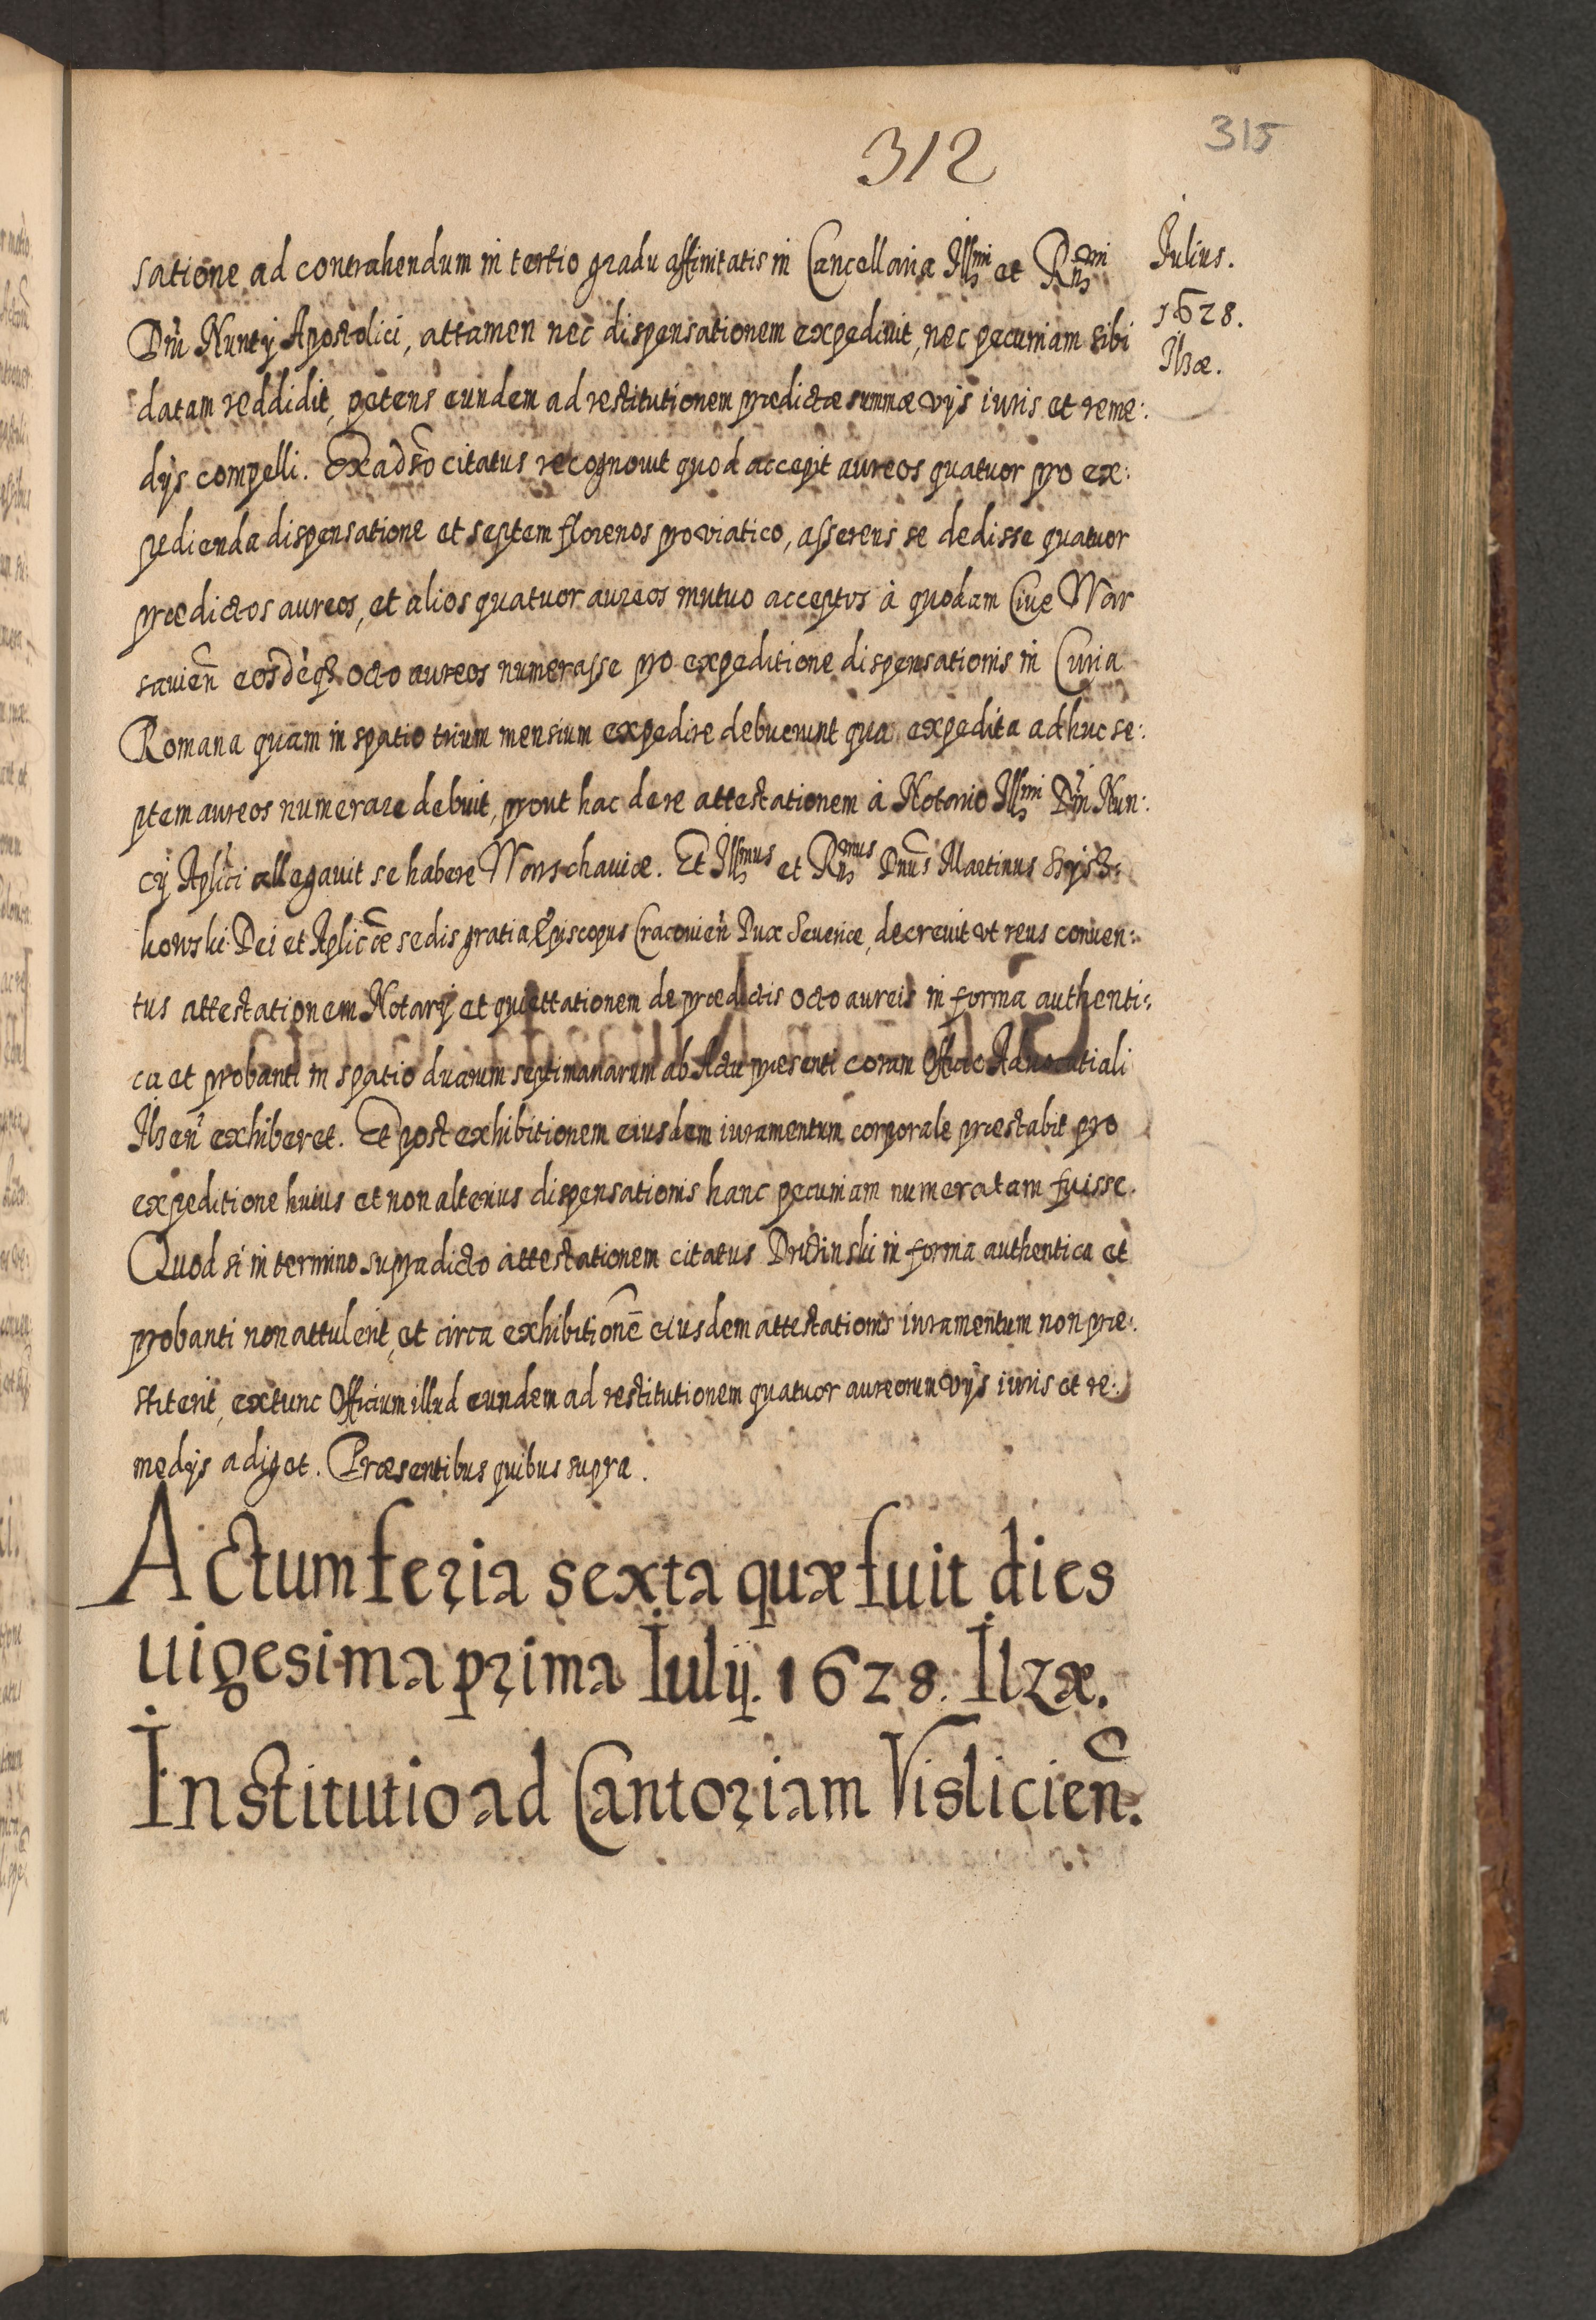 312
315
Julius.
1628.
Ilzæ.
satione ad contrahendum in tertio gradu affinitatis in Cancellaria Illmi et Rmi
Dni Nuntij Apostolici, attamen nec dispensationem expedivit, nec pecuniam sibi
datam reddidit, petens eundem ad restitutionem prædictæ summæ vijs iuris et reme:
dijs compelli. Ex adso citatus recognovit quod accepit aureos quatuor pro ex:
pedienda dispensatione et septem florenos pro viatico, asserens se dedisse quatuor
prædictos aureos, et alios quatuor aureos mutuo acceptos à quodam Cive War
savien eosdeq octo aureos numerasse pro expeditione dispensationis in Curia
Romana quam in spatio trium mensium expedire debuerunt qua expedita adhuc se:
ptem aureos numerare debuit, prout hac de re attestationem à Notario Illmi Dni Nun:
cij Aplici allegavit se habere Warschaviæ. Et Illmus et Rmus Dnus Martinus Szysz:
kowski Dei et Aplicæ sedis gratia Episcopus Cracovien Dux Severiæ, decrevit ut reus conven:
tus attestationem Notarij et quiettationem de prædictis octo aureis in forma authenti:
ca et probanti in spatio duarum septimanarum ab Actu præsenti coram Officio Advocatiali
Ilzen exhiberet. Et post exhibitionem eiusdem iuramentum corporale præstabit pro
expeditione huius et non alterius dispensationis hanc pecuniam numeratam fuisse.
Quod si in termino supradicto attestationem citatus in forma authentica et
probanti non attulerit, et circa exhibitionē eiusdem attestationis iuramentum non præ:
stiterit, extunc Officium illud eundem ad restitutionem quatuor aureorum vijs iuris et re:
medijs adiget. Præsentibus quibus supra.
Actum feria sexta quæ fuit dies
uigesima prima Iulij. 1628. Ilzæ.
Institutio ad Cantoriam Vislicien.